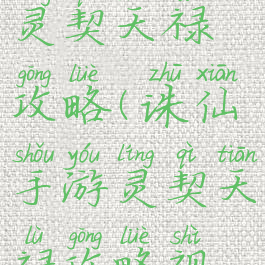 灵契天禄
gōng lüè zhū xiān
攻略(诛仙
shǒu yóu líng qì tiān
手游灵契天
lù gōng lüè shì
禄攻略视